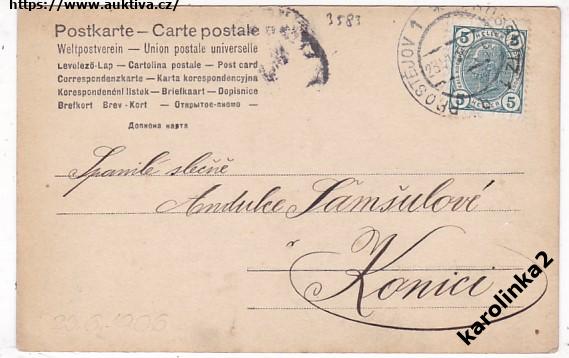 https://www.auktiva.cz/
3583
Postkarte — Carte postale
Weltpostverein — Union postale universelle
Levelező-Lap — Cartolina postale — Post card
Correspondenzkarte — Karta korespondencyjna
Korespondenéní lístek — Briefkaart — Dopisnice
Brefkort Brev-Kort — Открытое письмо —
Дописна карта
PROSTĚJOV 1
5 5
5 5
Spanilé slečně
Andulce Šamšulové
v
Konici
23.6.1906
karolinka2